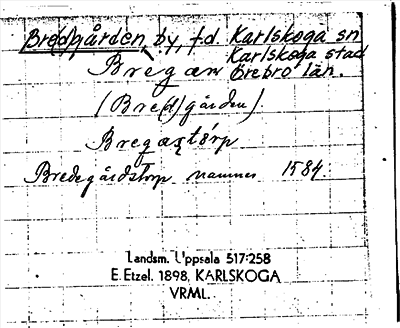 Bredgården, by, f.d. Karlskoga sn
Karlskoga stad
Örebro län.
Bregan
(Bre(d)gården)
Bregastórp
Bredegårdstorp namnes 1584.
Landsm. Uppsala 517:258
E. Etzel. 1898, KARLSKOGA
VRML.